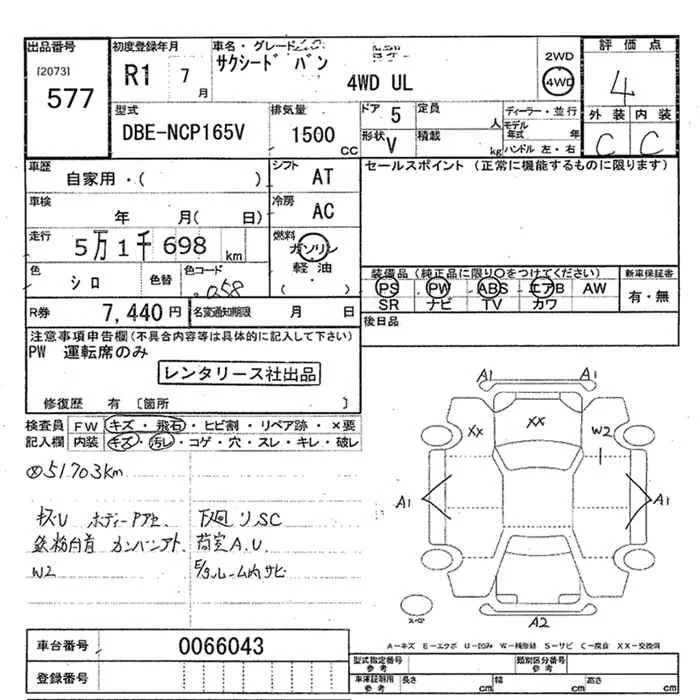 出品番号
[2073]
577
初度登録年月
R1 7月
車名・グレード
サクシード バン
4WD UL
2WD
4WD
評価点
4
外装 内装
C C
型式
DBE-NCP165V
排気量
1500 CC
ドア 5
形状 V
定員 人
積載 kg
ディーラー・並行
モデル年式 年
ハンドル 左・右
車歴
自家用・( )
シフト
AT
セールスポイント (正常に機能するものに限ります)
車検
年 月( 日)
冷房
AC
走行
5万1千698km
燃料
ガソリン
軽油
( )
色
シロ
色替
色コード
058
装備品(純正品に限り○をつけてください)
PS PW ABS エアB AW
SR ナビ TV カワ
新車保証書
有・無
R券
7,440円
名変通知期限
月 日
後日品
注意事項申告欄(不具合内容等は具体的に記入して下さい)
PW 運転席のみ
レンタリース社出品
修復歴 有 〔箇所 〕
検査員記入欄
FW キズ・飛石・ヒビ割・リペア跡・×要
内装 キズ・汚レ・コゲ・穴・スレ・キレ・破レ
51703km
キズU ボディー
下廻りSC
荷室A.U
W2
E/gルーム内サビ
A1 A1
XX XX W2
A1 A1
A2
スペア
A=キズ E=エクボ U=凹み W=補修跡 S=サビ C=腐食 XX=交換済
車台番号
0066043
登録番号
型式指定番号
参考
類別区分番号
参考
車庫証明用
参考
長さ cm
幅 cm
高さ cm